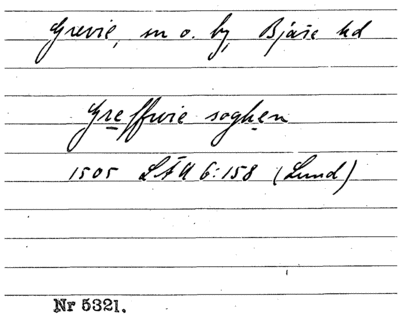 Grevie, sn o. by, Bjäre hd
Greffwie soghen
1505 LÄU 6:158 (Lund)
Nr 5321.